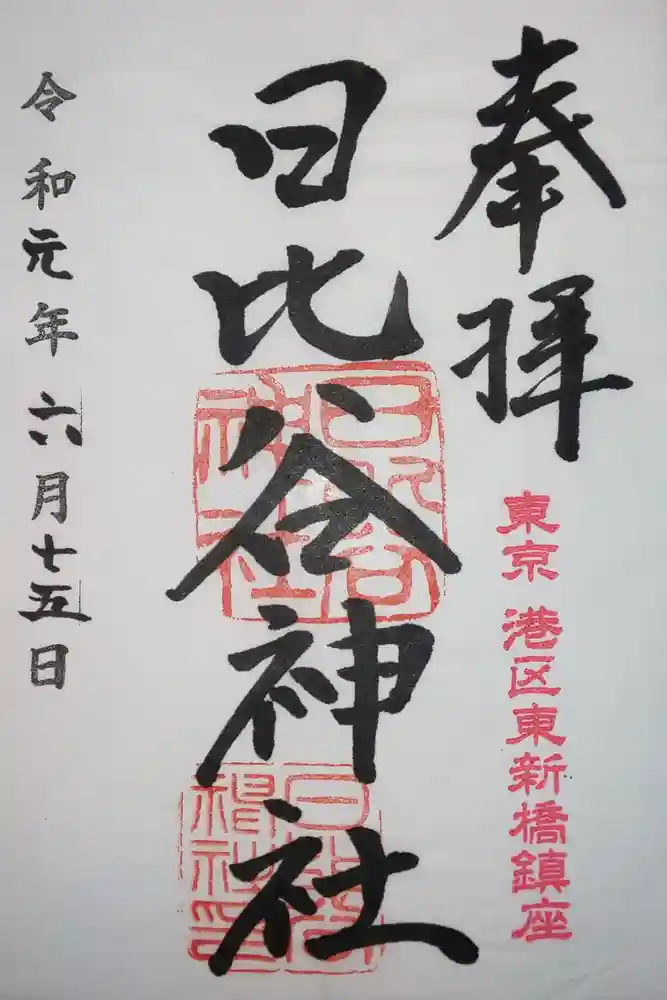 奉拝
東京 港区東新橋鎮座
日比谷神社
日比谷神社
令和元年六月七五日